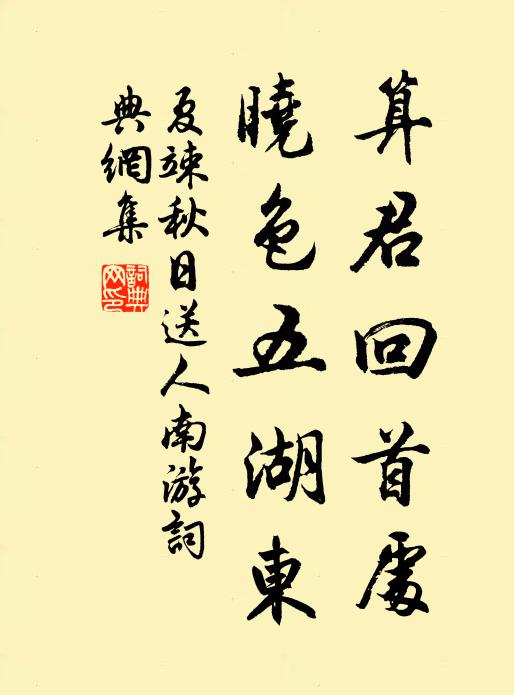 算君回首處
曉色五湖東
夏竦秋日送人南游詞
典網集
詞典
网印